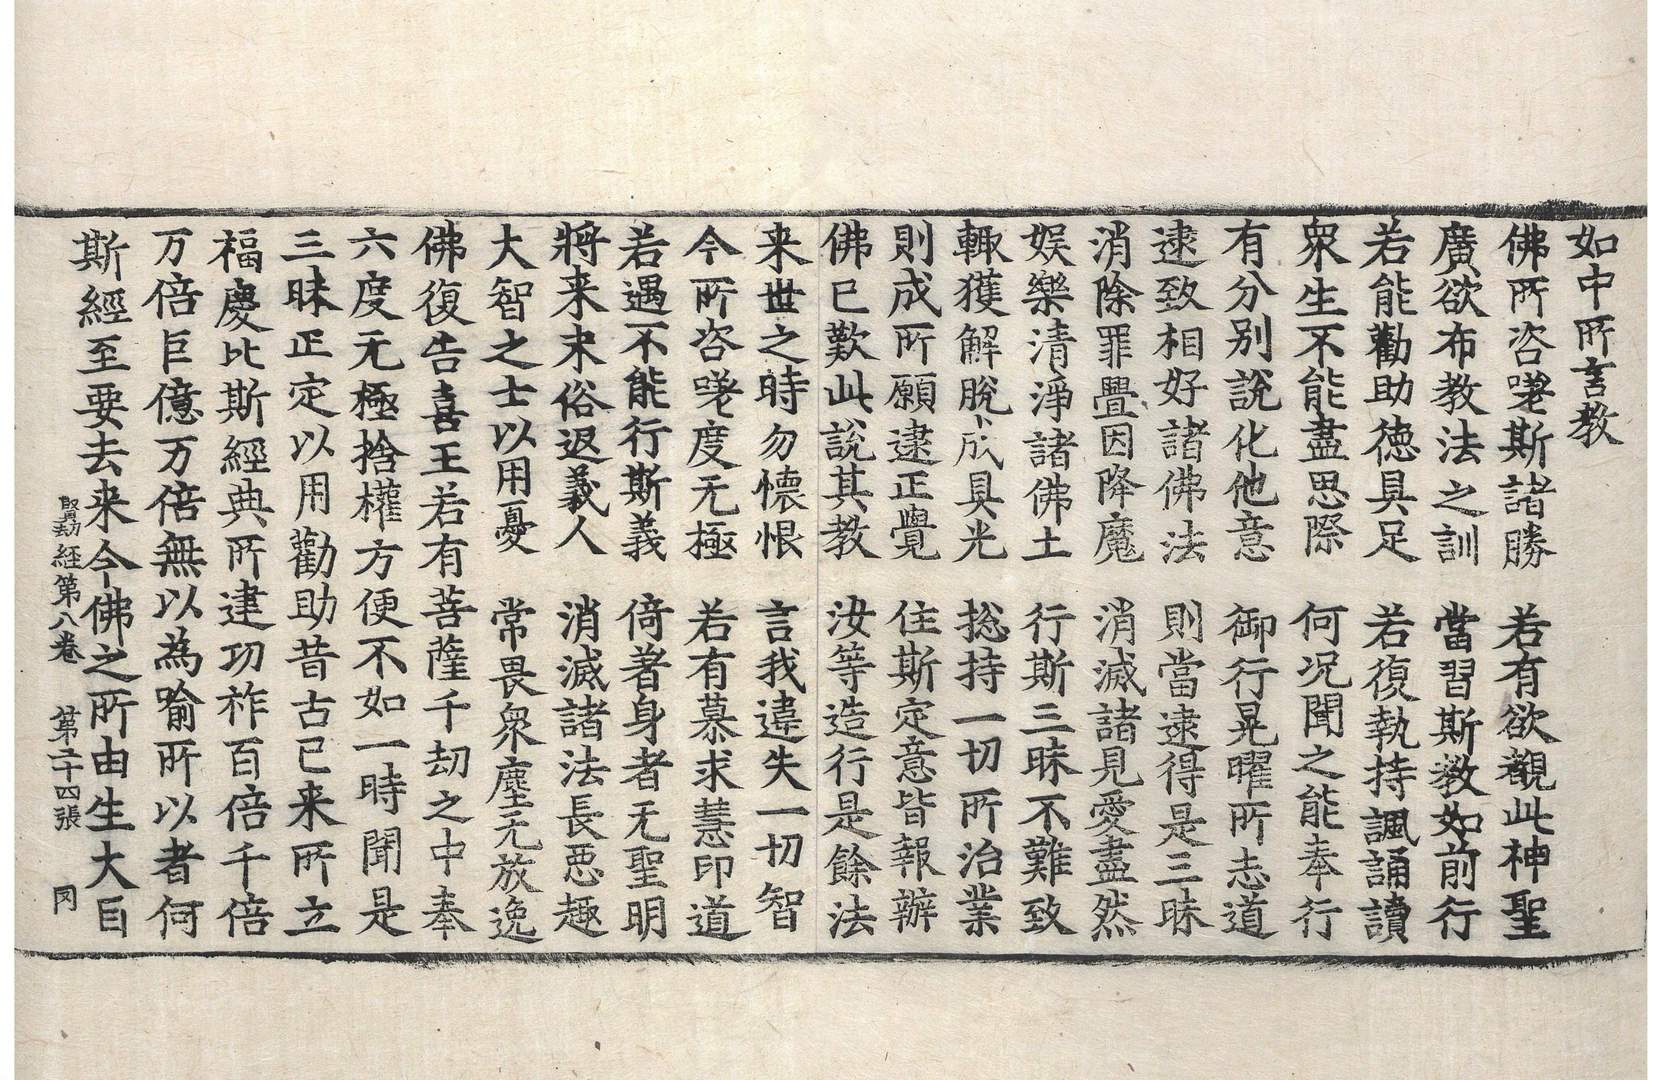 如中所言教
佛所咨嗟斯諸勝　若有欲觀此神聖
廣欲布教法之訓　當習斯教如前行
若能勸助德具足　若復執持諷誦讀
衆生不能盡思際　何况聞之能奉行
有分別說化他意　御行晃曜所志道
逮致相好諸佛法　則當逮得是三昧
消除罪疊因降魔　消滅諸見愛盡然
娛樂清淨諸佛土　行斯三昧不難致
輙獲解脫成具光　捴持一切所治業
則成所願逮正覺　住斯定意皆報辦
佛已歎此說其教　汝等造行是餘法
来世之時勿懷恨　言我違失一切智
今所咨嗟度无極　若有慕求慧印道
若遇不能行斯義　倚著身者无聖明
將来末俗返義人　消滅諸法長惡趣
大智之士以用憂　常畏衆塵无放逸
佛復告喜王若有菩薩千劫之中奉
六度无極捨權方便不如一時聞是
三昧正定以用勸助昔古已来所立
福慶比斯經典所建功祚百倍千倍
万倍巨億万倍無以為喻所以者何
斯經至要去来今佛之所由生大目
賢劫經第八卷　第二十四張　罔